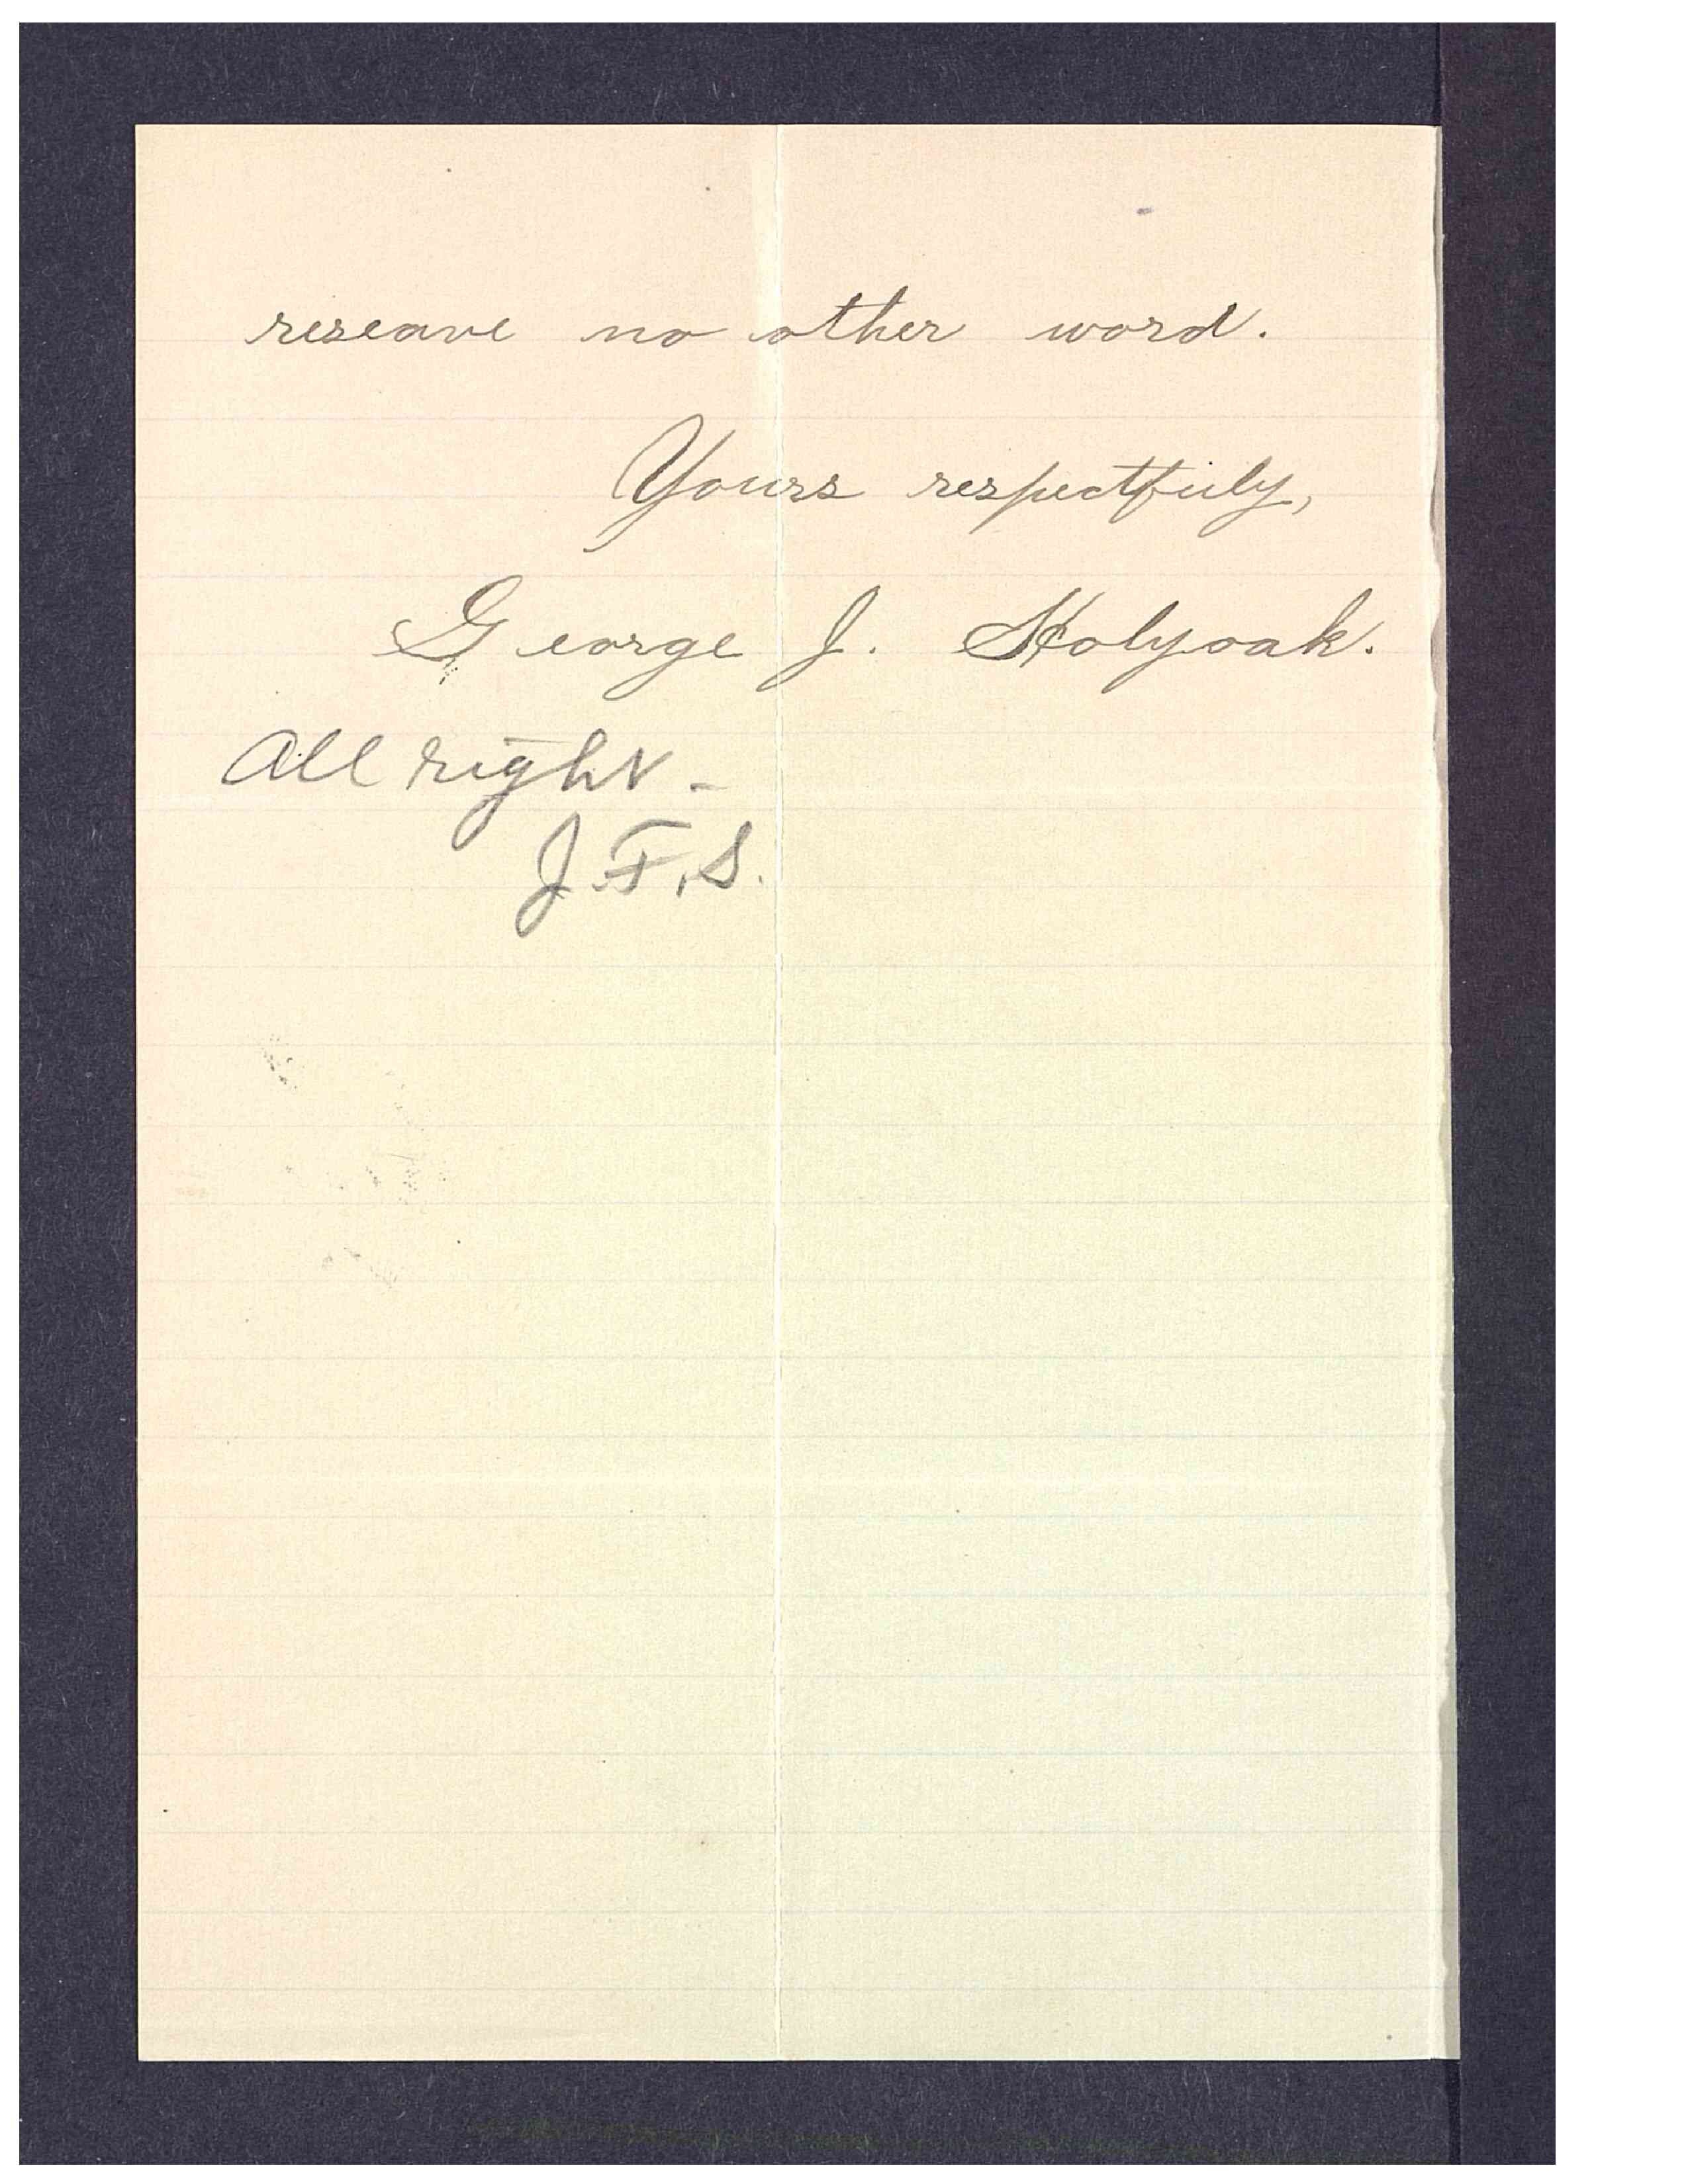 reseave no other word.
Yours respectfuly,
George J. Holyoak.
All right -
J.F.S.